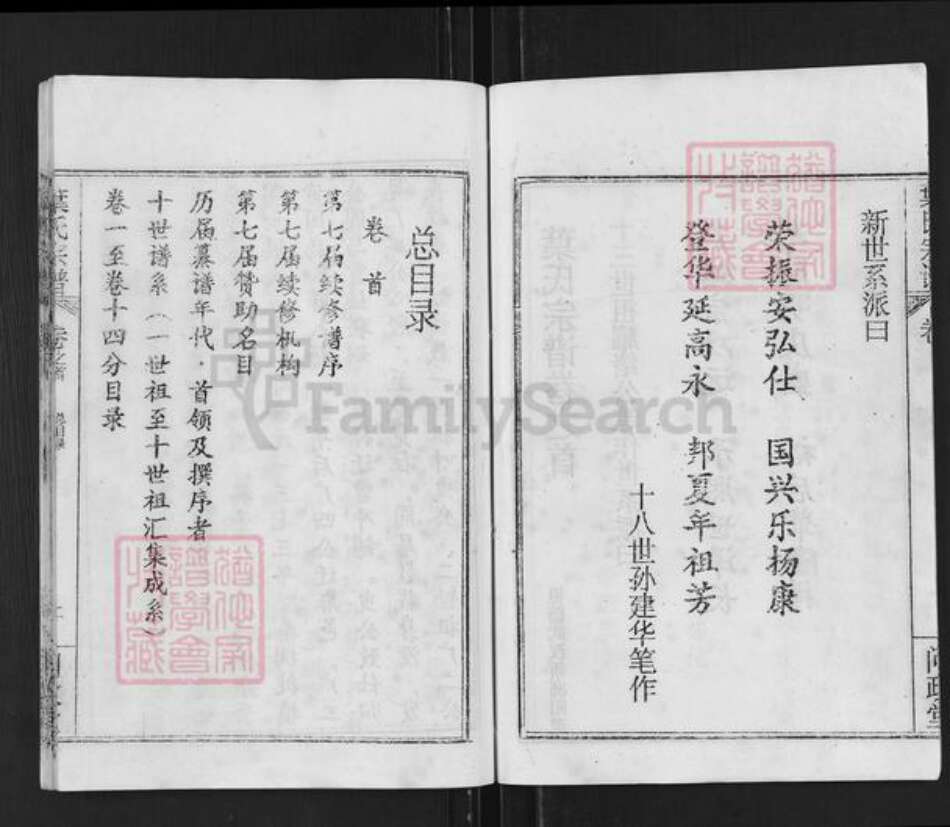 新世系派曰
荣振安弘仕　国兴乐杨康
登华延高永　邦夏年祖芳
十八世孙建华笔作
问政堂
总目录
卷　首
第七届续修谱序
第七届续修机构
第七届赞助名目
历届纂谱年代·首领及撰序者
十世谱系（一世祖至十世祖汇集成系）
卷一至卷十四分目录
葉氏宗譜
卷之首
FamilySearch